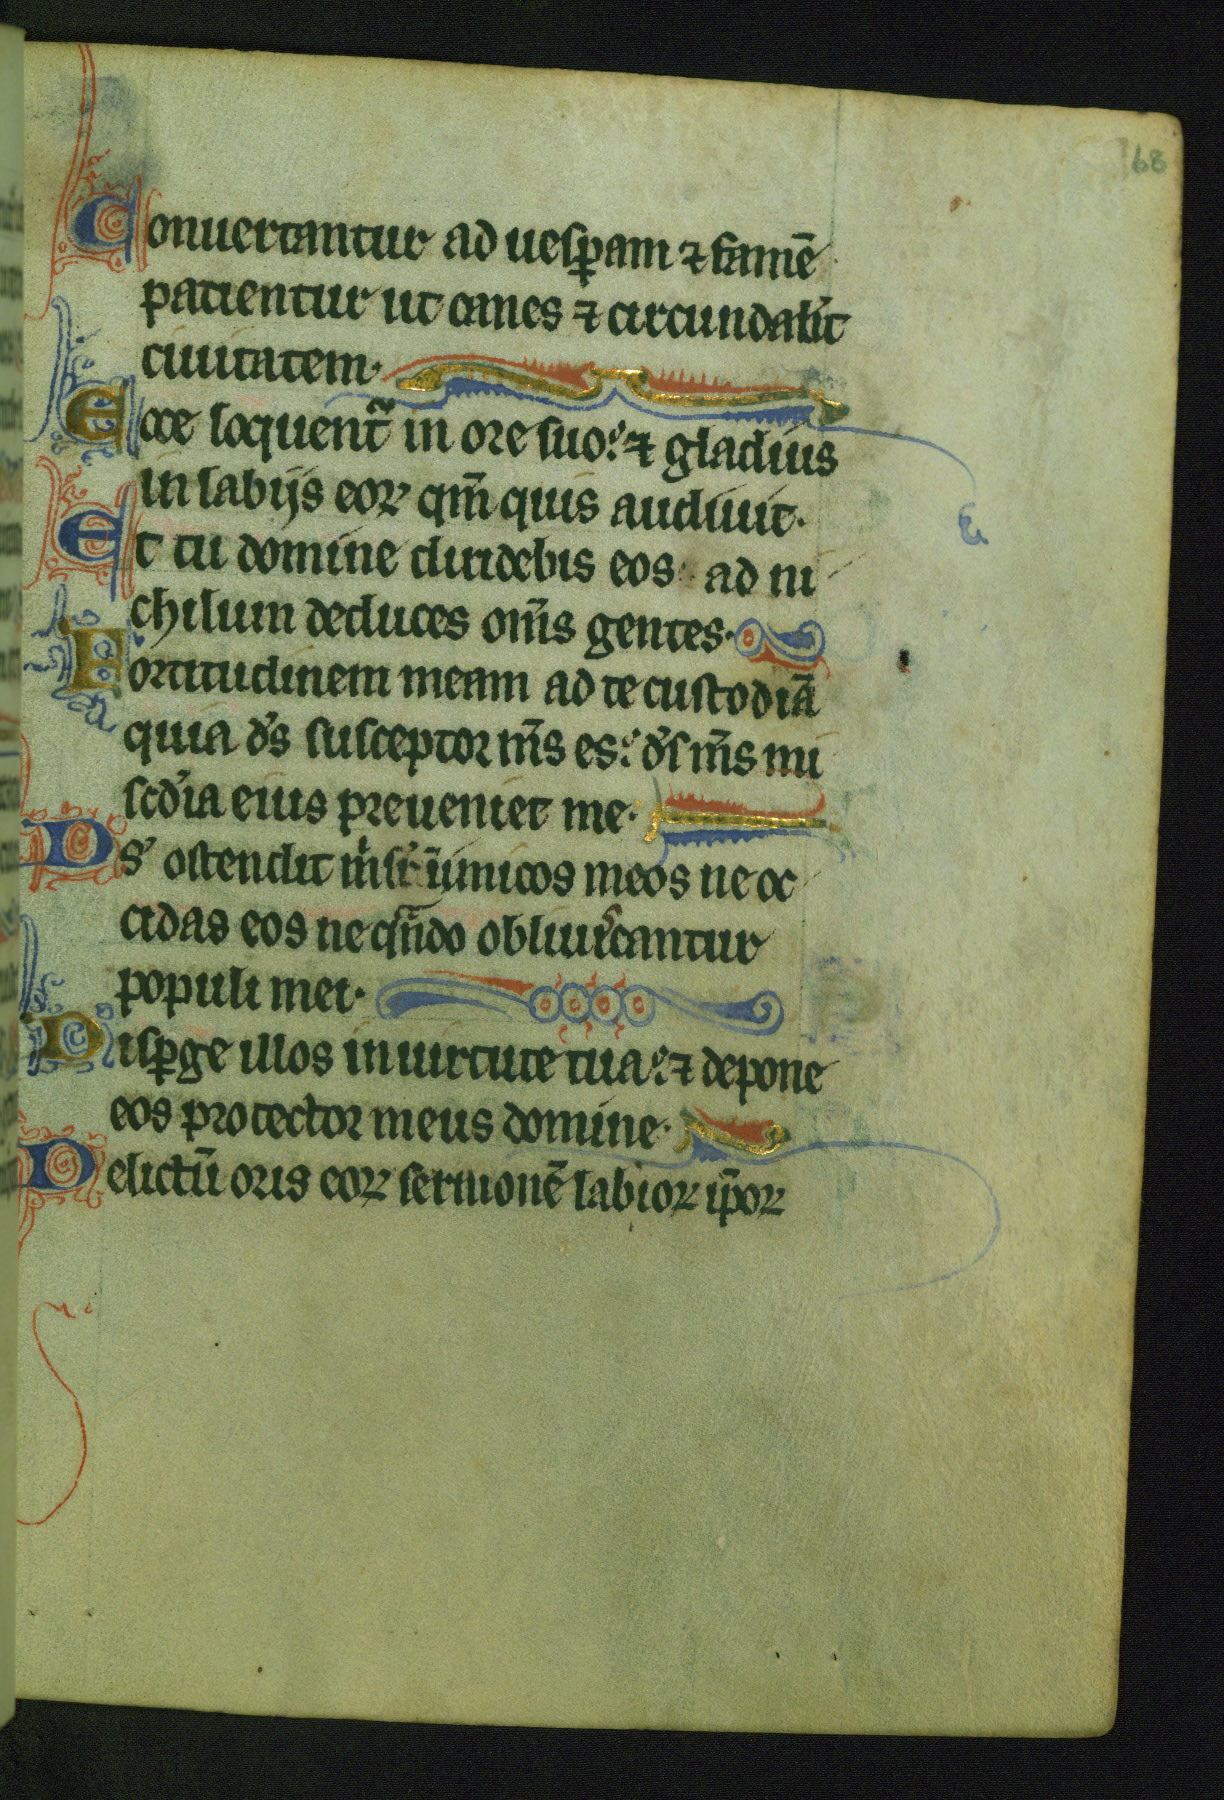 68
Conuertantur ad uesꝑam ⁊ famē
patientur ut canes ⁊ circundab̄t
ciuitatem·
Ecce loquent᷑ in ore suo: ⁊ gladius
in labijs eoꝝ qm̄ quis audiuit·
Et tu domine diridebis eos: ad ni
chilum deduces om̄s gentes·
Fortitudinem meam ad te custodiā
quia d̓s susceptor m̄s es: d̓s m̄s mi
sc̓dia eius preueniet me·
Ds̓ ostendit m̓ sr̄ inimicos meos ne oc
cidas eos ne qn̄do obliuiscantur
populi mei·
Disꝑge illos in uirtute tua: ⁊ depone
eos protector meus domine·
Delictū oris eoꝝ sermonē labioꝝ ip̄oꝝ